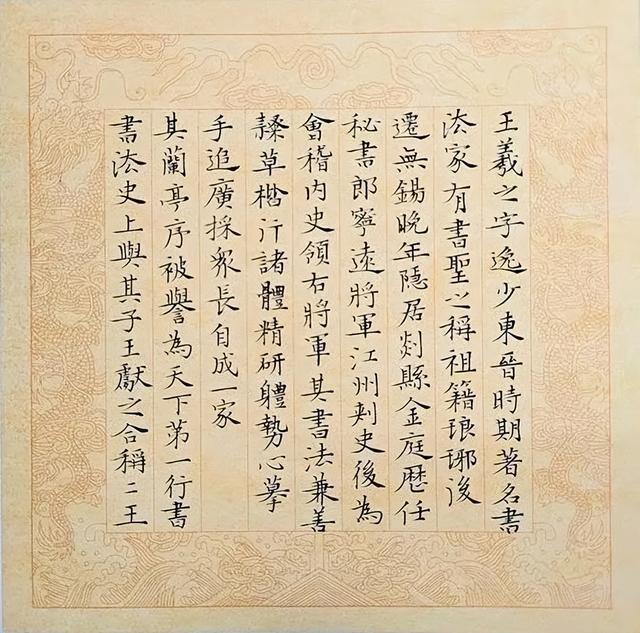 王羲之字逸少東晉時期著名書
法家有書聖之稱祖籍琅琊後
遷無錫晚年隱居剡縣金庭歷任
秘書郎寧遠將軍江州刺史後為
會稽內史領右將軍其書法兼善
隸草楷行諸體精研體勢心摹
手追廣採衆長自成一家
其蘭亭序被譽為天下第一行書
書法史上與其子王獻之合稱二王